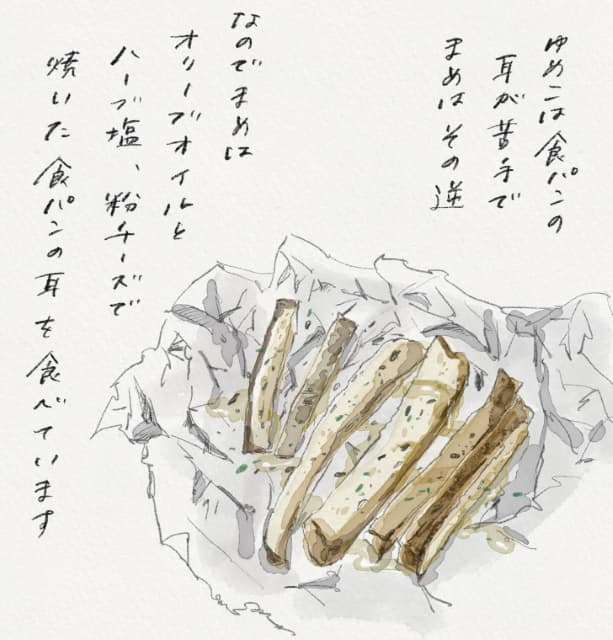 ゆめこは食パンの
耳が苦手で
まめはその逆
なのでまめは
オリーブオイルと
ハーブ塩、粉チーズで
焼いた食パンの耳を食べています